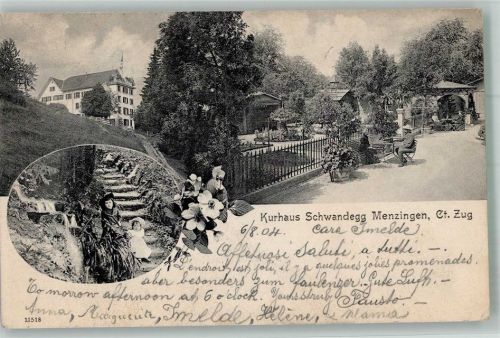 Kurhaus Schwandegg Menzingen, Ct. Zug
6/8.04. cara Imelde
Affetuosi Saluti, a tutti. —
L'endroit est joli, il y a quelques jolies promenades.
aber besonders zum Faulenzen. Gute Luft. —
To morrow afternoon at 6 o'clock. Yours truly Fausto. —
Anna, Marguerite, Imelde, Hélène, e Mama
11518